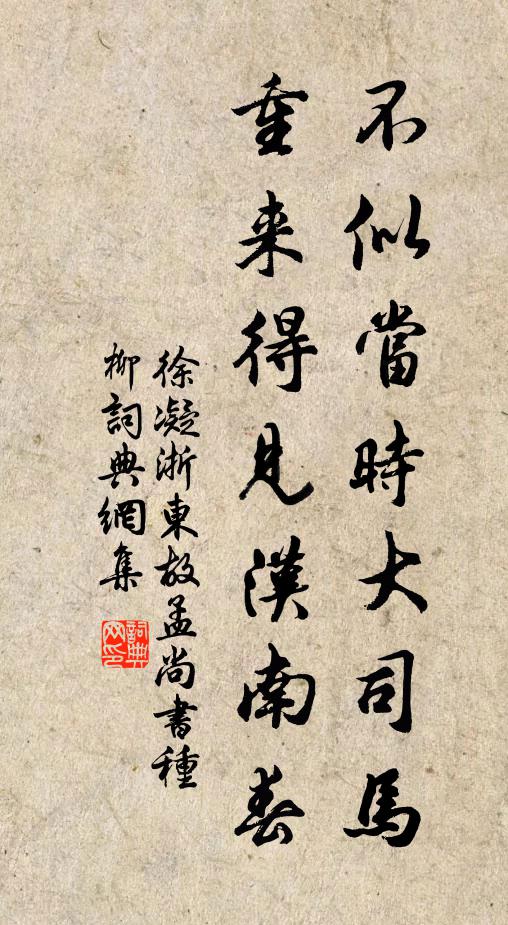 不似當時大司馬
重来得見漢南春
徐凝浙東故孟尚書種
柳詞典網集
詞典網印